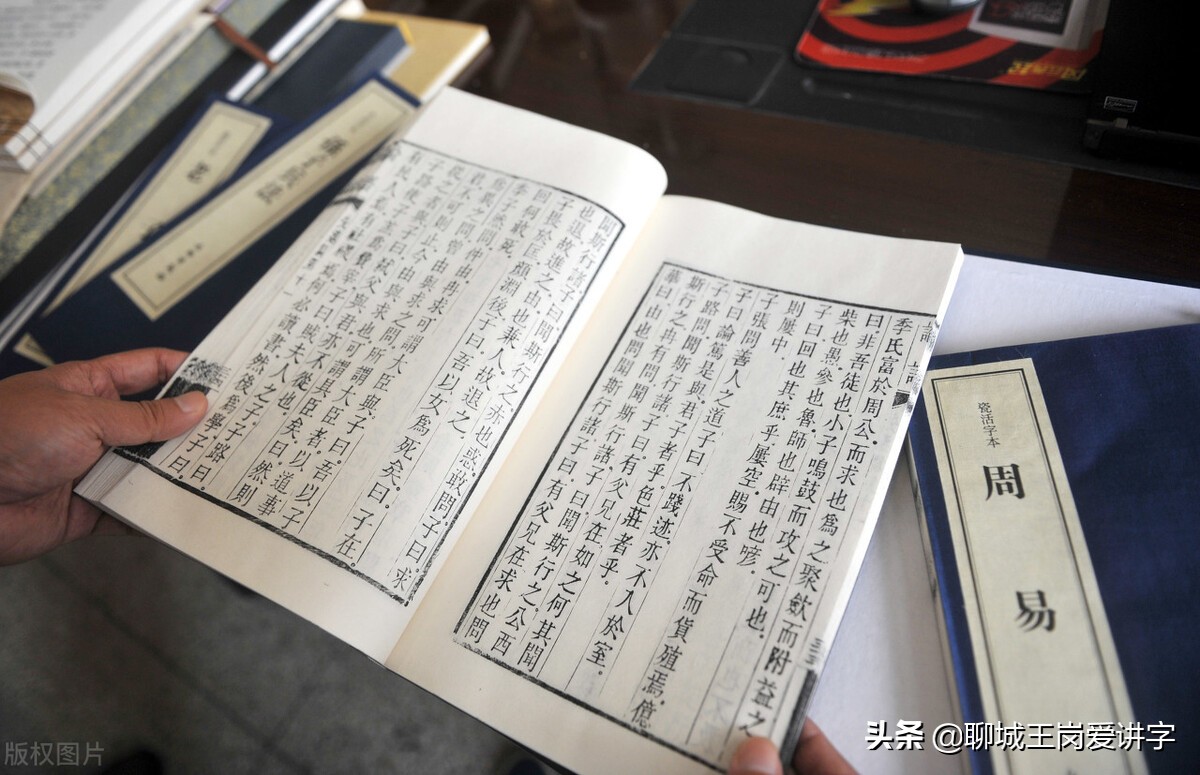 季氏富於周公。而求也為之聚斂而附益之
曰非吾徒也小子鳴鼓而攻之可也。
柴也愚。參也魯。師也辟由也喭。
子曰回也其庶乎屢空。賜不受命而貨殖焉。億
則屢中。
子張問善人之道子曰不踐迹亦不入於室。
子曰論篤是與。君子者乎。色莊者乎。
子路問聞斯行諸子曰有父兄在如之何其聞
斯行之冉有問聞斯行諸子曰聞斯行之公西
華曰由也問聞斯行諸子曰有父兄在求也問
聞斯行諸子曰聞斯行之。赤也惑。敢問子曰求
也退。故進之。由也兼人。故退之。
子畏於匡顏淵後子曰吾以女為死矣。曰。子在。
回何敢死。
季子然問。仲由冉求可謂大臣與子曰。吾以子
為異之問。曾由與求之問。所謂大臣者。以道事
君不可則止。今由與求也。可謂具臣矣曰。然則
從之者與。子曰弑父與君。亦不從也
子路使子羔為費宰。子曰。賊夫人之子。子路曰。
有民人焉有社稷焉何必讀書然後為學。子曰。
瓷活字本
周易
版权图片
头条 @聊城王岗爱讲字